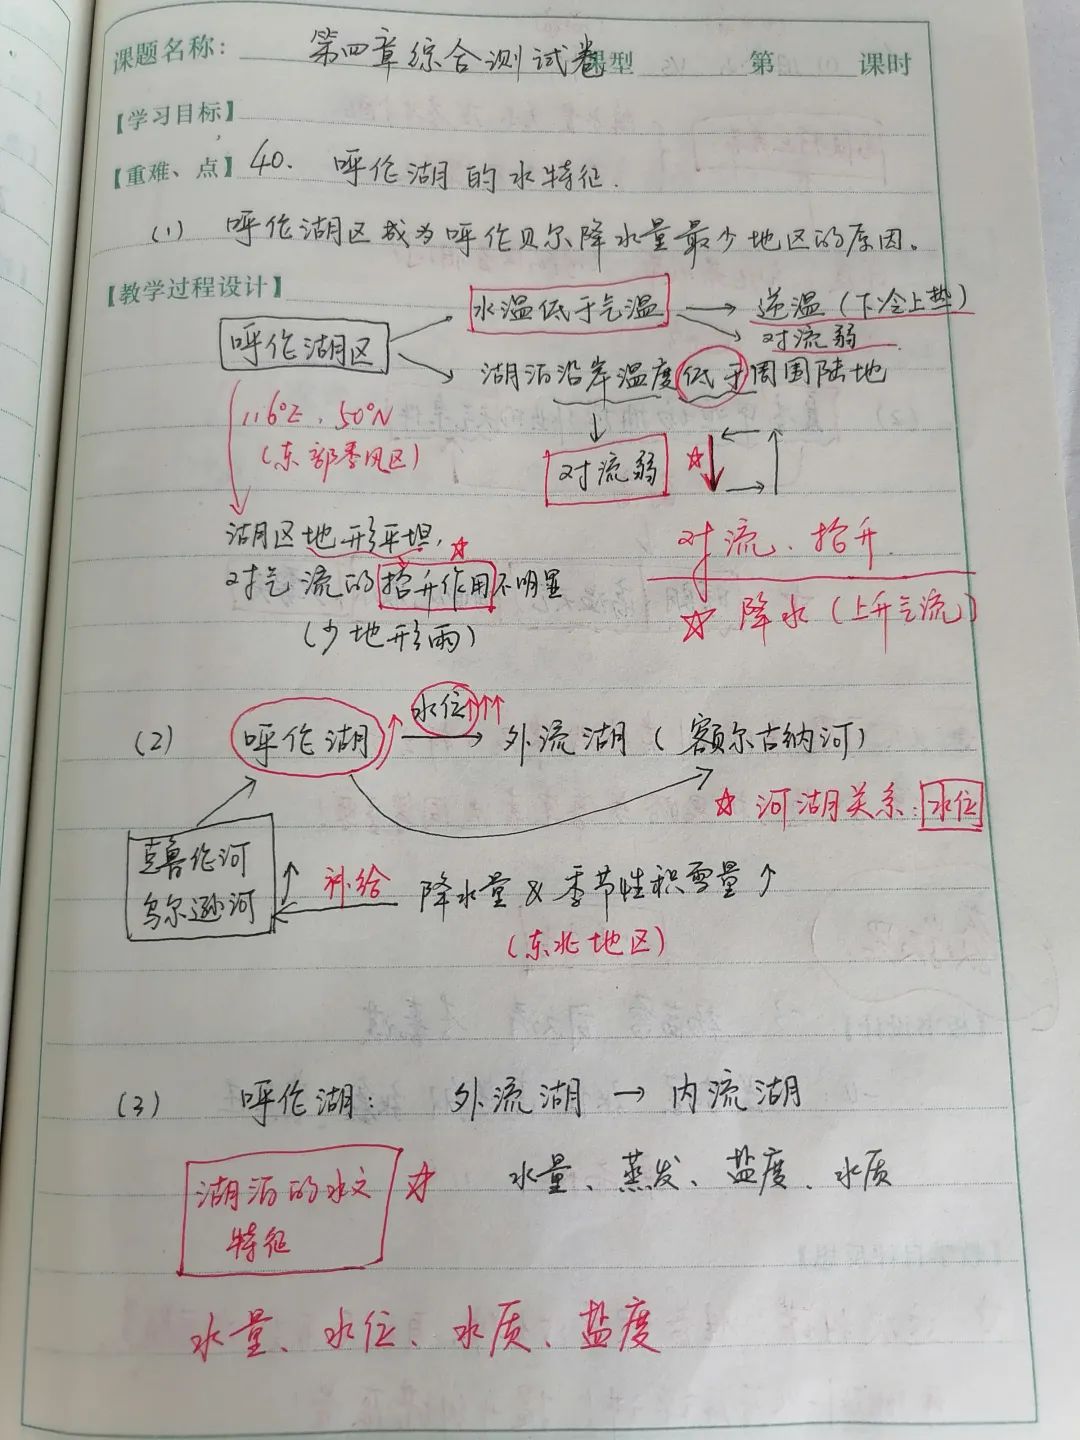 课题名称：第四章综合测试卷 课型 第 课时
【学习目标】
【重难、点】40. 呼伦湖的水特征.
(1) 呼伦湖区成为呼伦贝尔降水量最少地区的原因。
【教学过程设计】
水温低于气温 → 逆温(下冷上热)
对流弱
呼伦湖区
湖泊沿岸温度低于周围陆地
116°E, 50°N
(东部季风区)
对流弱 ☆
湖区地形平坦,
对流、抬升
对气流的抬升作用不明显
☆ 降水(上升气流)
(少地形雨)
(2) 呼伦湖 ↑ 水位↑↑↑ → 外流湖(额尔古纳河)
☆ 河湖关系:水位
克鲁伦河
乌尔逊河 ↑ 补给 ← 降水量 & 季节性积雪量↑
(东北地区)
(3) 呼伦湖: 外流湖 → 内流湖
湖泊的水文 ☆ 水量、蒸发、盐度、水质
特征
水量、水位、水质、盐度